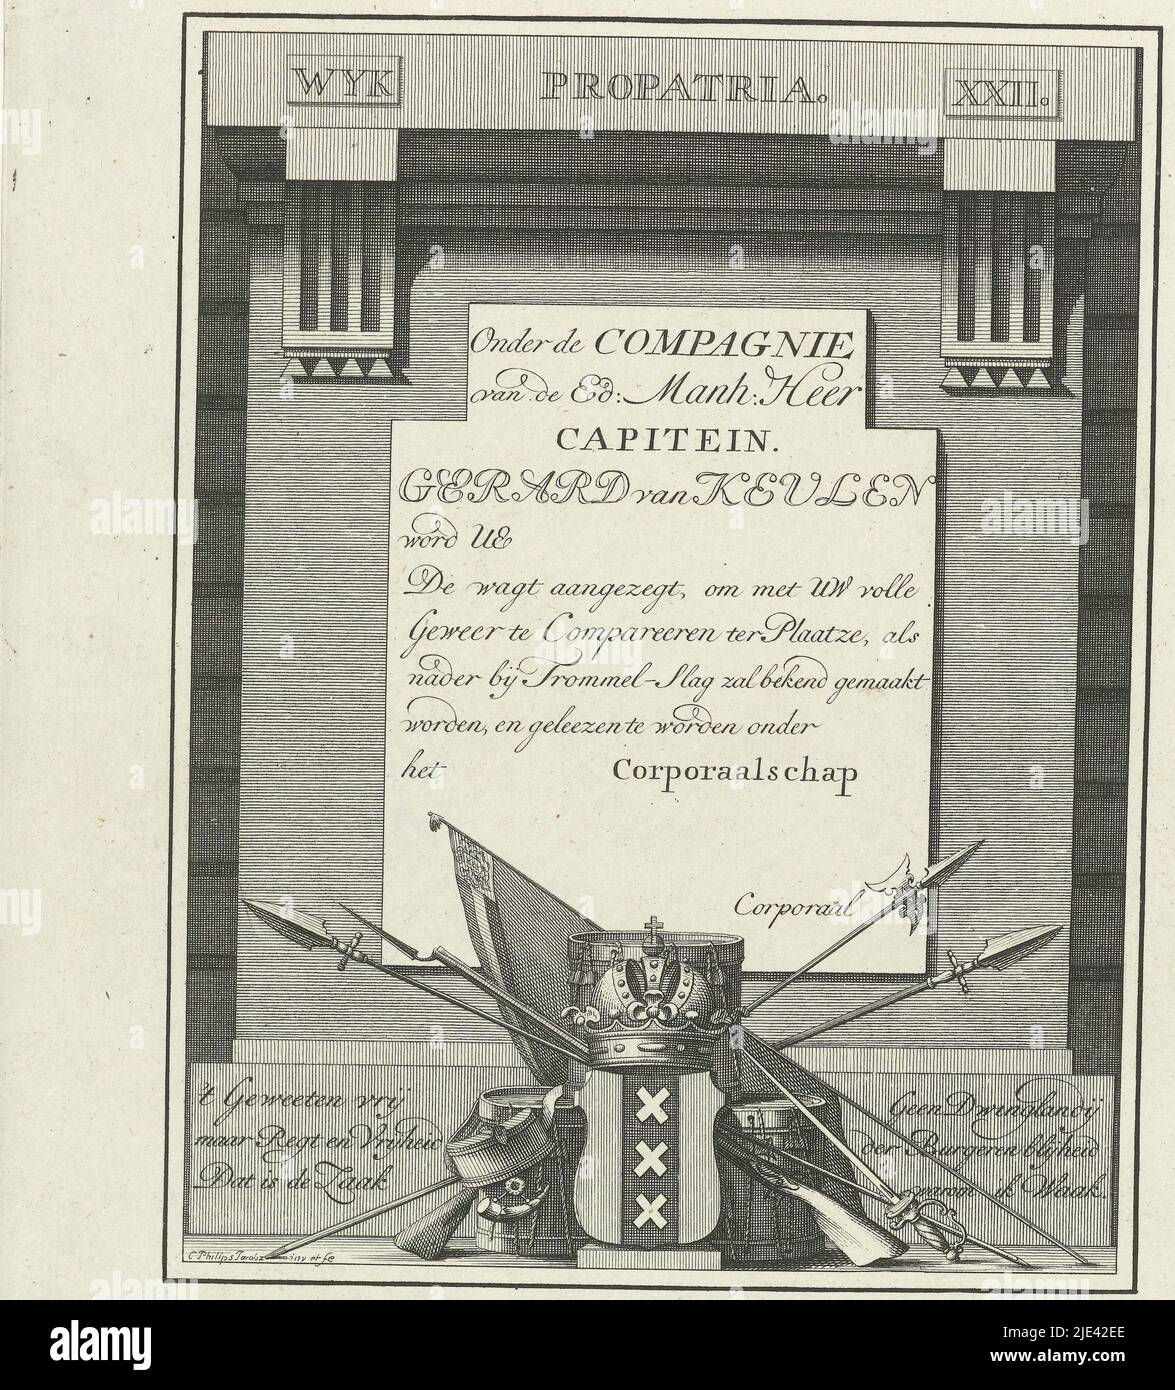 WYK PROPATRIA. XXII.
Onder de COMPAGNIE
van de Ed: Manh: Heer
CAPITEIN.
GERARD van KEULEN
word UE
De wagt aangezegt, om met UW volle
Geweer te Compareeren ter Plaatze, als
nader bij Trommel-Slag zal bekend gemaakt
worden, en geleezen te worden onder
het Corporaalschap
Corporaal
't Geweeten vrij
maar Regt en Vryheid
Dat is de Zaak
Geen Dwinglandij
der Burgeren blijheid
waarom ik Waak.
C. Philips Jacobz inv et fe
alamy
Image ID: 2JE42EE
www.alamy.com